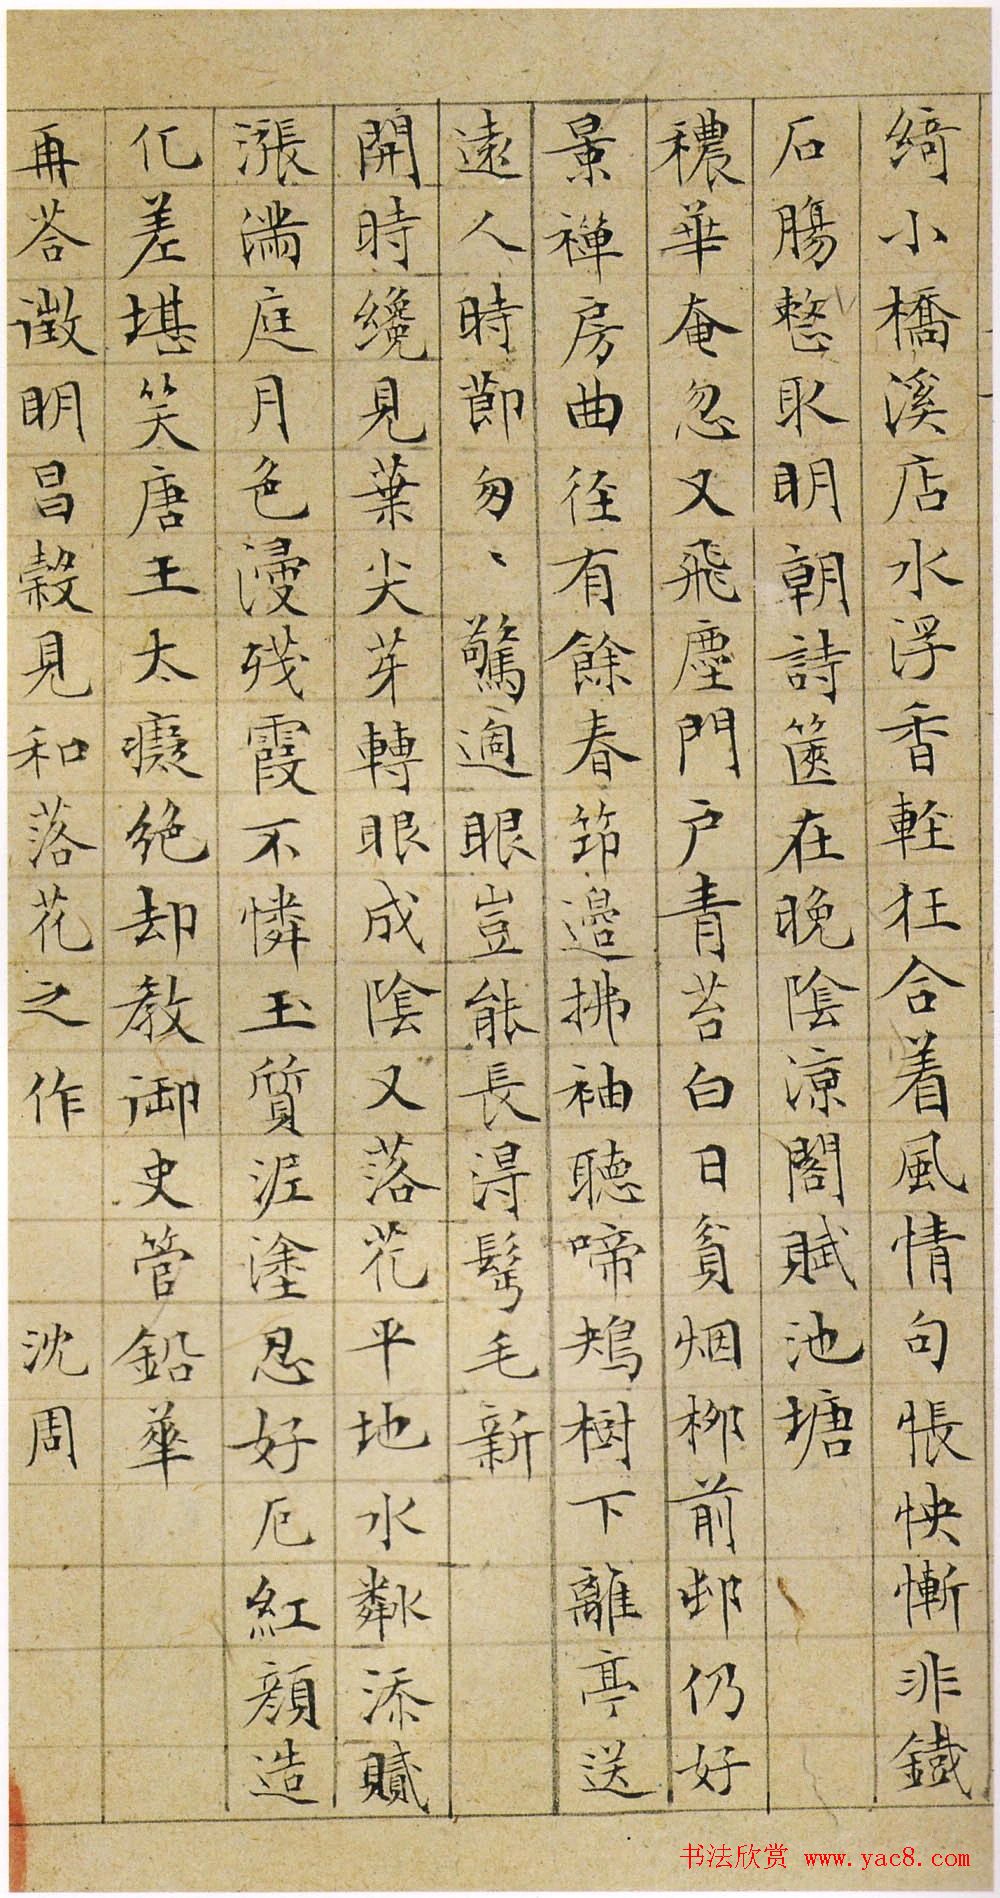 綺小橋溪店水浮香輕狂合着風情句悵怏慚非鐵
石腸愁取明朝詩篋在晚陰涼閣賦池塘
穠華奄忽又飛塵門戶青苔白日貧烟柳前邨仍好
景禪房曲徑有餘春笻邊拂袖聽啼鴂樹下離亭送
遠人時節匆〻驚過眼豈能長得鬢毛新
開時纔見葉尖芽轉眼成陰又落花平地水粼添膩
漲滿庭月色漫殘霞不憐玉質泥塗忍好厄紅顏造
化差堪笑唐王太癡絕却教御史管鉛華
再荅徵明昌榖見和落花之作 沈周
书法欣赏 www.yac8.com